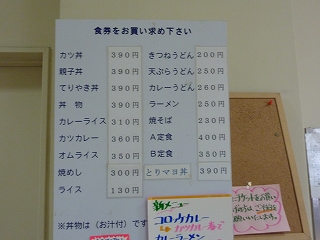 食券をお買い求め下さい
カツ丼 390円 きつねうどん 200円
親子丼 390円 天ぷらうどん 250円
てりやき丼 390円 カレーうどん 260円
丼物 390円 ラーメン 250円
カレーライス 310円 焼そば 230円
カツカレー 360円 A定食 400円
オムライス 350円 B定食 350円
焼めし 300円 とりマヨ丼 390円
ライス 130円
※丼物は(お汁付)です
新メニュー
コロッケカレー
カレーラーメン